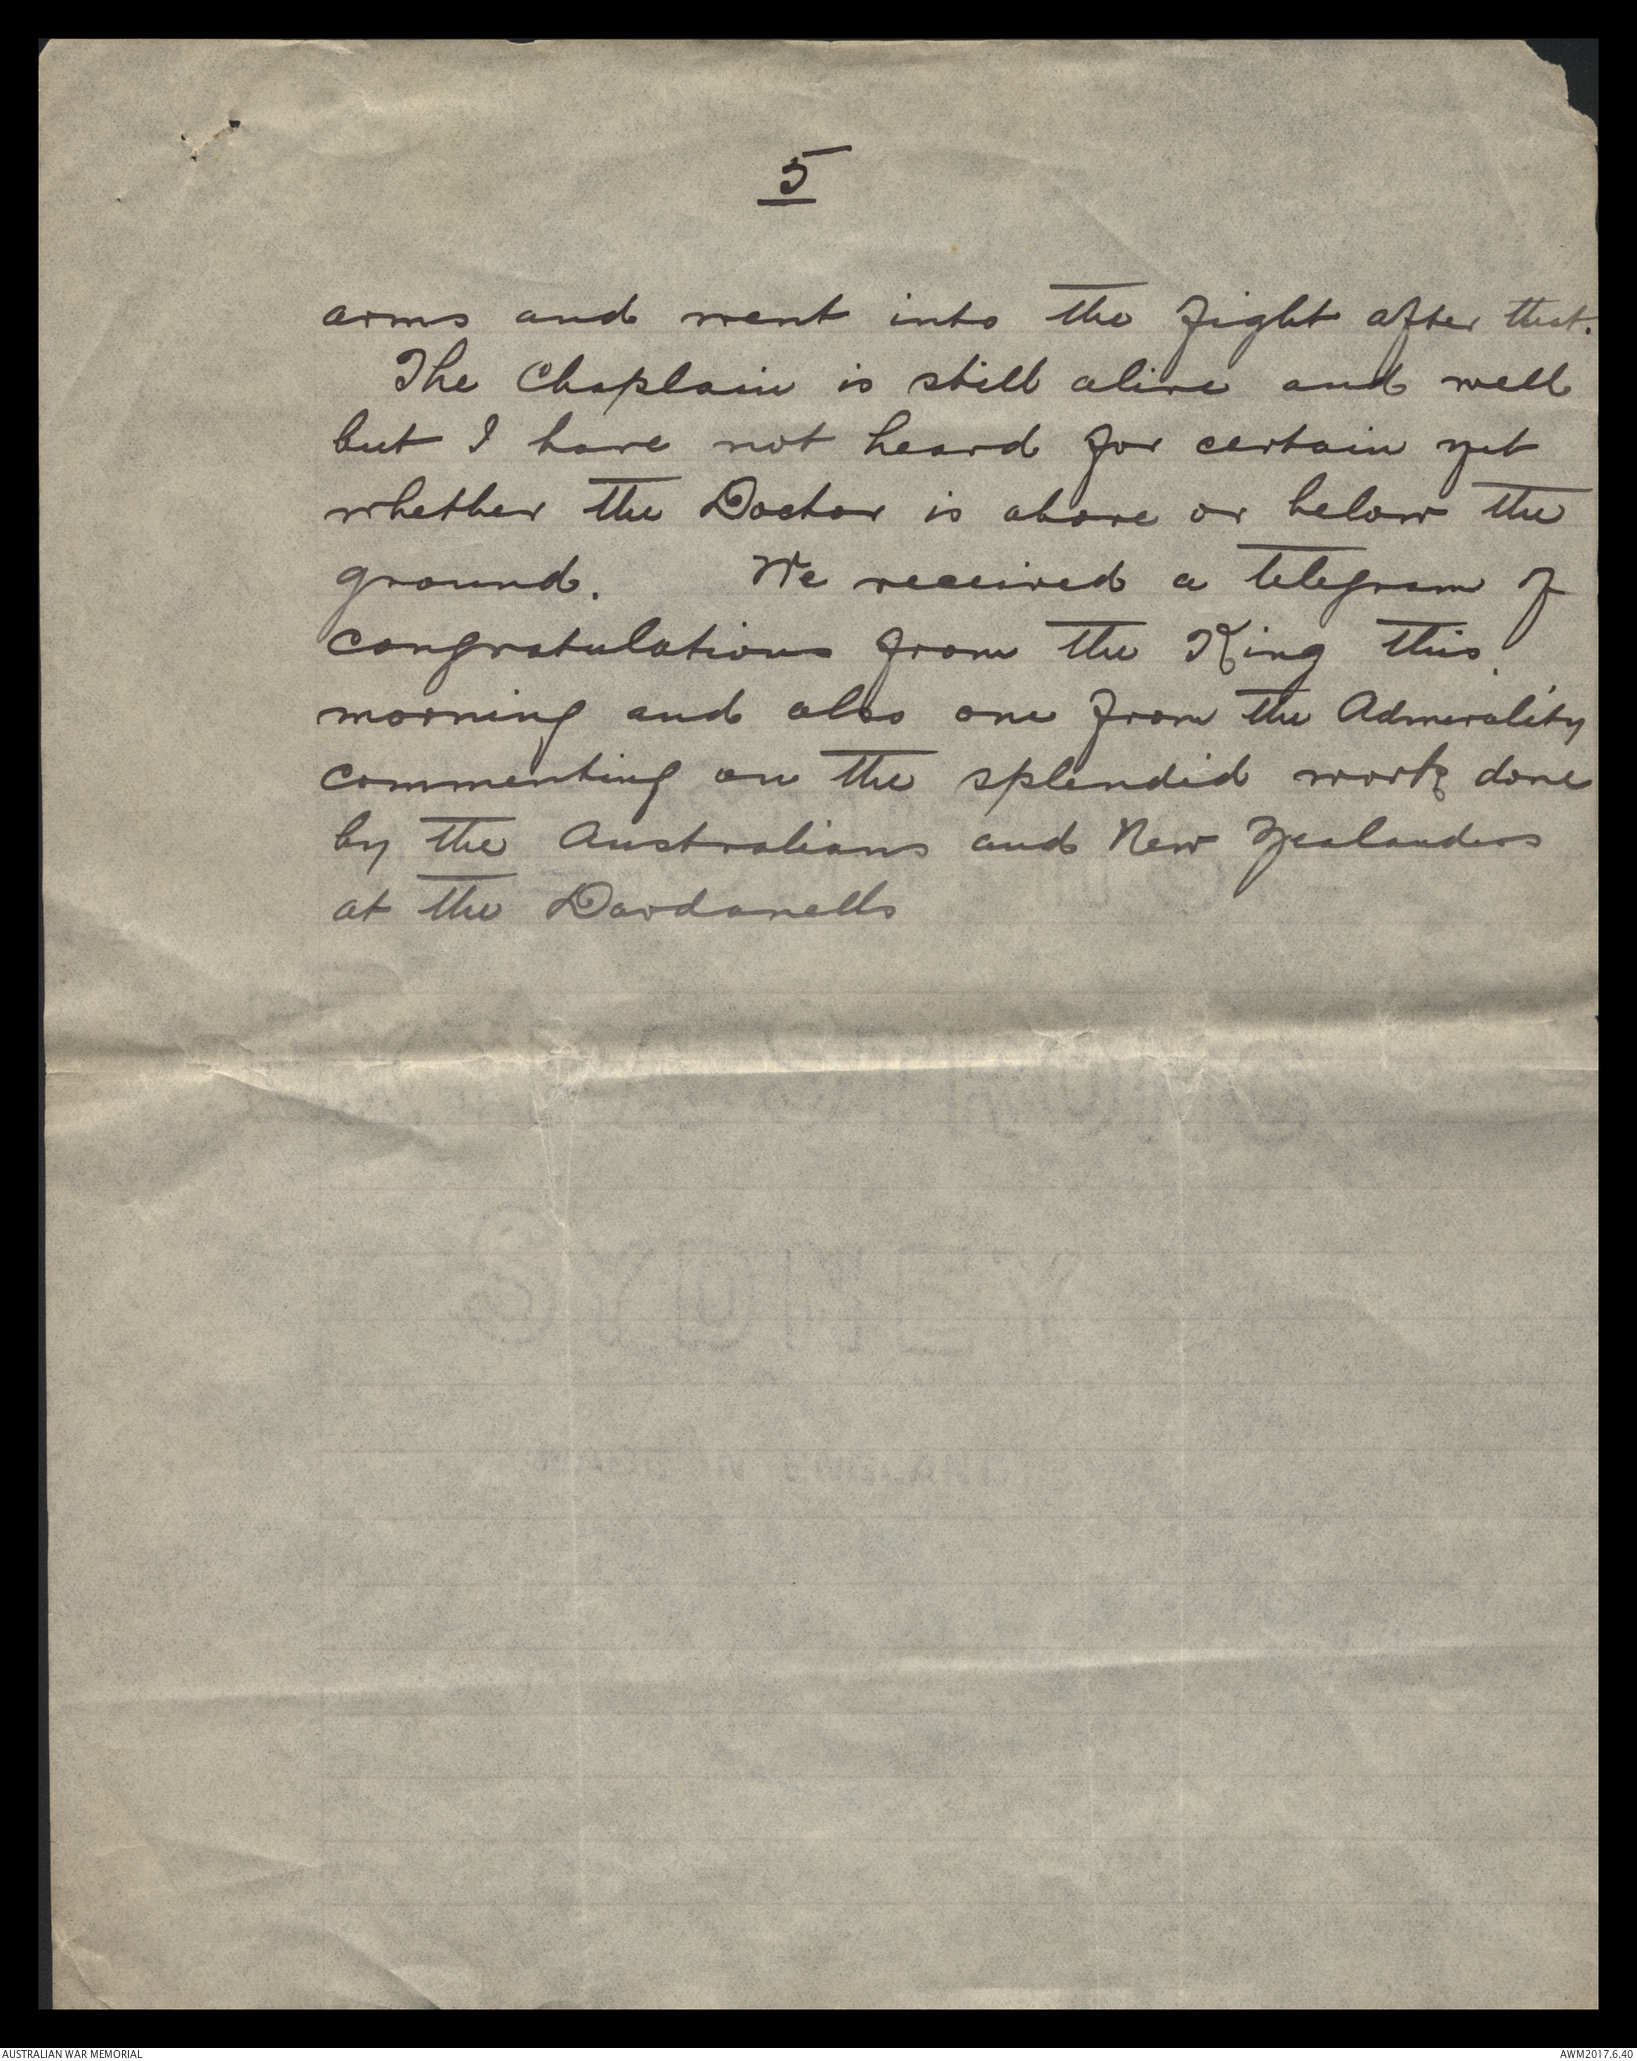 5
arms and went into the fight after that.
The Chaplain is still alive and well
but I have not heard for certain yet
whether the Doctor is above or below the
ground. We received a telegram of
congratulations from the King this
morning and also one from the Admirality
commenting on the splendid work done
by the Australians and New Zealanders
at the Dardanells
SYDNEY
AUSTRALIAN WAR MEMORIAL
AWM2017.6.40